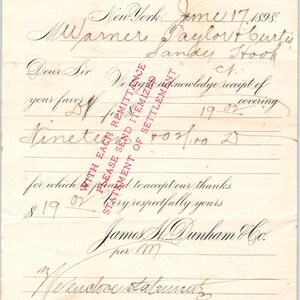 New York, June 17 1898
M Warner Taylor & Curtis
Sandy Hook
Ct.
Dear Sir
We beg to acknowledge receipt of
your favor covering
19 02
Nineteen 02/100 D
WITH EACH REMITTANCE
PLEASE SEND ITEMIZED
STATEMENT OF SETTLEMENT
for which be pleased to accept our thanks.
$ 19 02 Very respectfully yours
James H. Dunham & Co.
per M